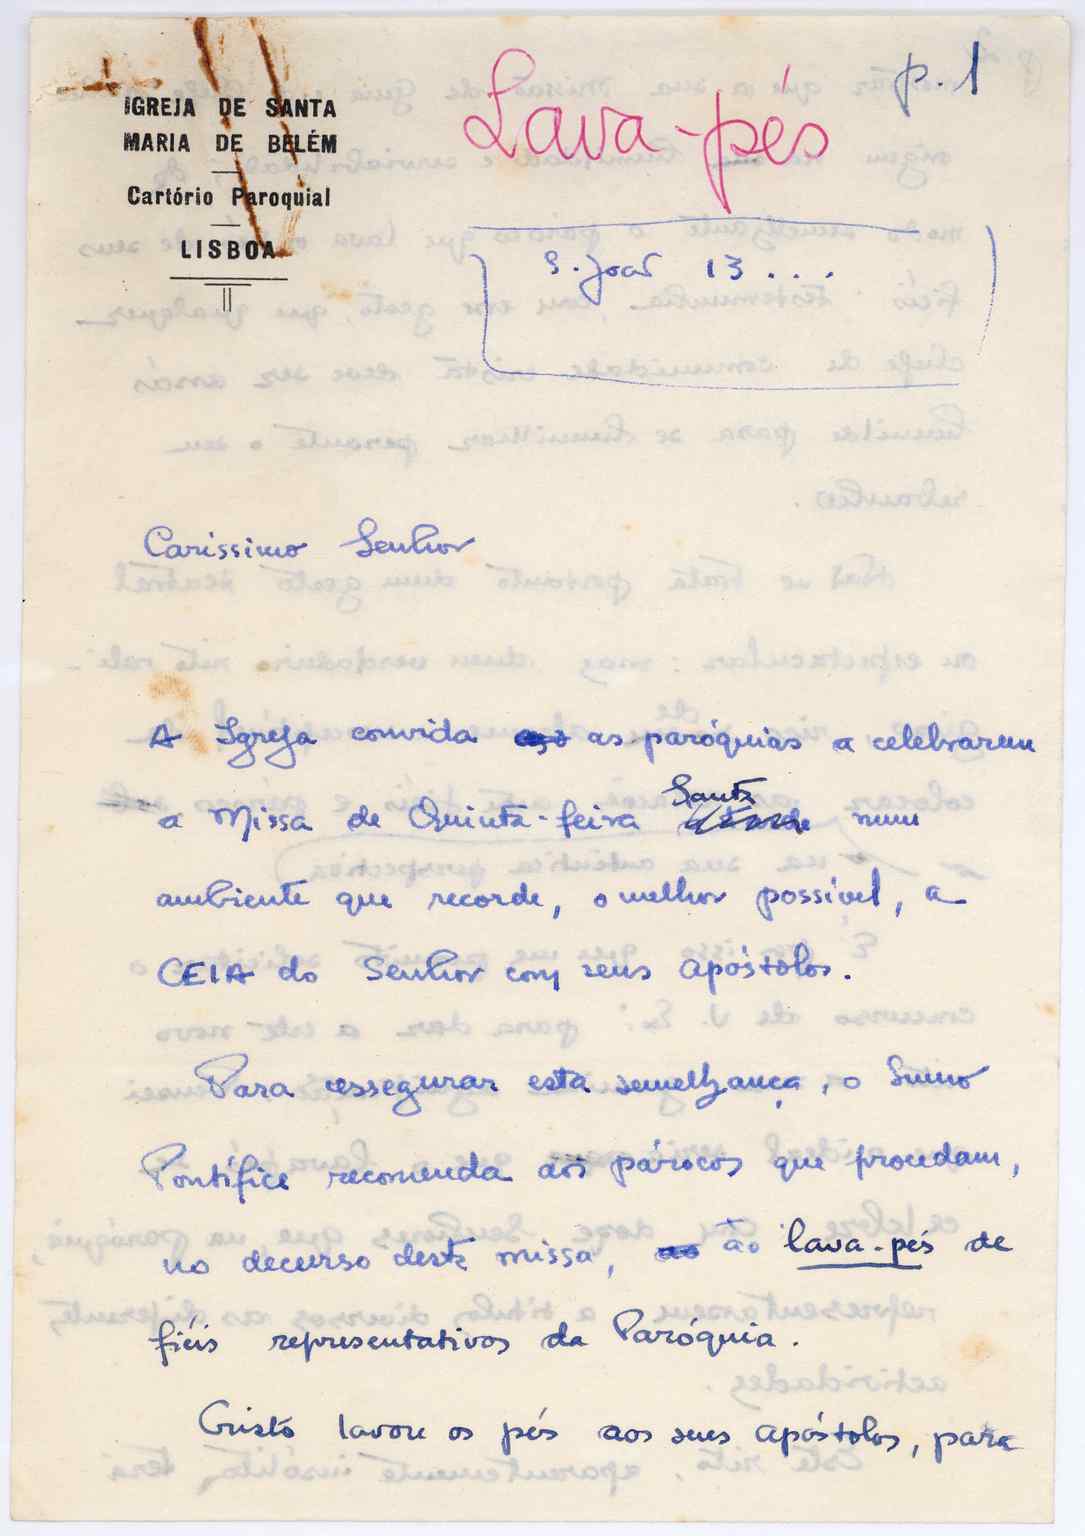 IGREJA DE SANTA
MARIA DE BELÉM
Cartório Paroquial
LISBOA
Lava-pés
p. 1
S. João 13...
Caríssimo Senhor
A Igreja convida as paróquias a celebrarem
a Missa de Quinta-feira Santa num
ambiente que recorde, o melhor possível, a
CEIA do Senhor com seus apóstolos.
Para assegurar esta semelhança, o Sumo
Pontífice recomenda aos párocos que procedam,
no decurso desta missa, ao lava-pés de
fiéis representativos da Paróquia.
Cristo lavou os pés aos seus apóstolos, para